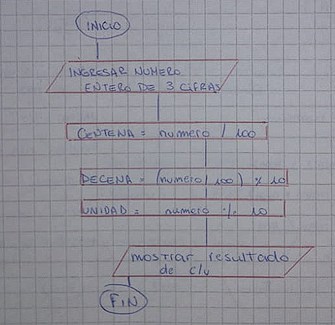 INICIO
INGRESAR NUMERO
ENTERO DE 3 CIFRAS
CENTENA = numero / 100
DECENA = (numero / 100) % 10
UNIDAD = numero % 10
mostrar resultado
de c/u
FIN